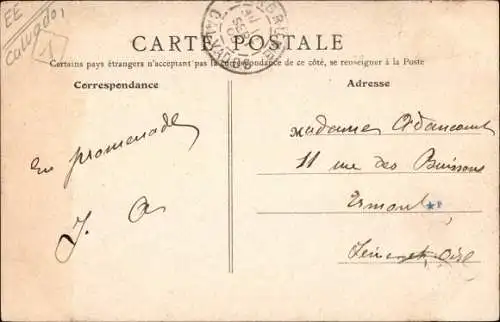 EE
Calvados
1
CARTE POSTALE
Certains pays étrangers n'acceptant pas la correspondance de ce côté, se renseigner à la Poste
Correspondance
Adresse
En promenade
J. A
Madame Adancourt
11 rue des Buissons
Ermont
Seine et Oise